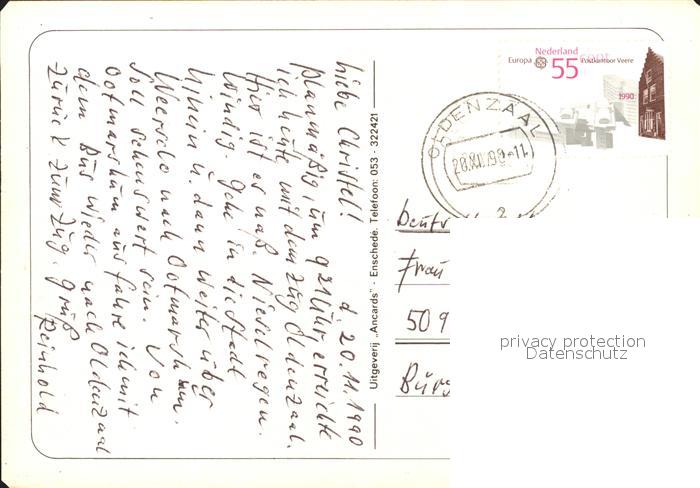 d. 20.11.1990
Liebe Christel!
Planmäßig um 9 21 Uhr, erreichte
ich heute mit dem Zug Oldenzaal.
Hier ist es naß. Nieselregen.
Windig. Gehe in die Stadt
hinein u. dann weiter über
Weerselo nach Ootmarshum.
Soll sehenswert sein. Von
Ootmarshum aus fahre ich mit
dem Bus wieder nach Oldenzaal
zurück zum Zug. Gruß
Reinhold
Uitgeverij „Ancards" - Enschede. Telefoon: 053 - 322421
Nederland
Europa 55 cent Postkantoor Veere
1990
OLDENZAAL
Frau
509
privacy protection
Datenschutz